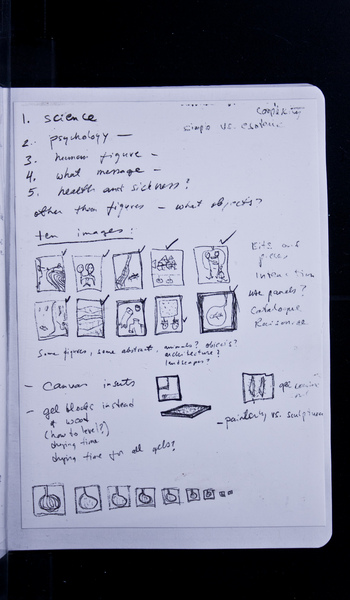 complexity
simple vs. esoteric
1. science
2. psychology —
3. human figure —
4. what message —
5. health and sickness?
other than figures — what objects?
ten images:
Bits and
pieces
Interaction
use panels?
Catalogue
Raisonné
Some figures, some abstract. animals? objects?
architecture?
landscapes?
- Canvas insets
- gel blocks instead
of wood
(how to level?)
drying time
drying time for all gels?
- painterly vs. sculpture